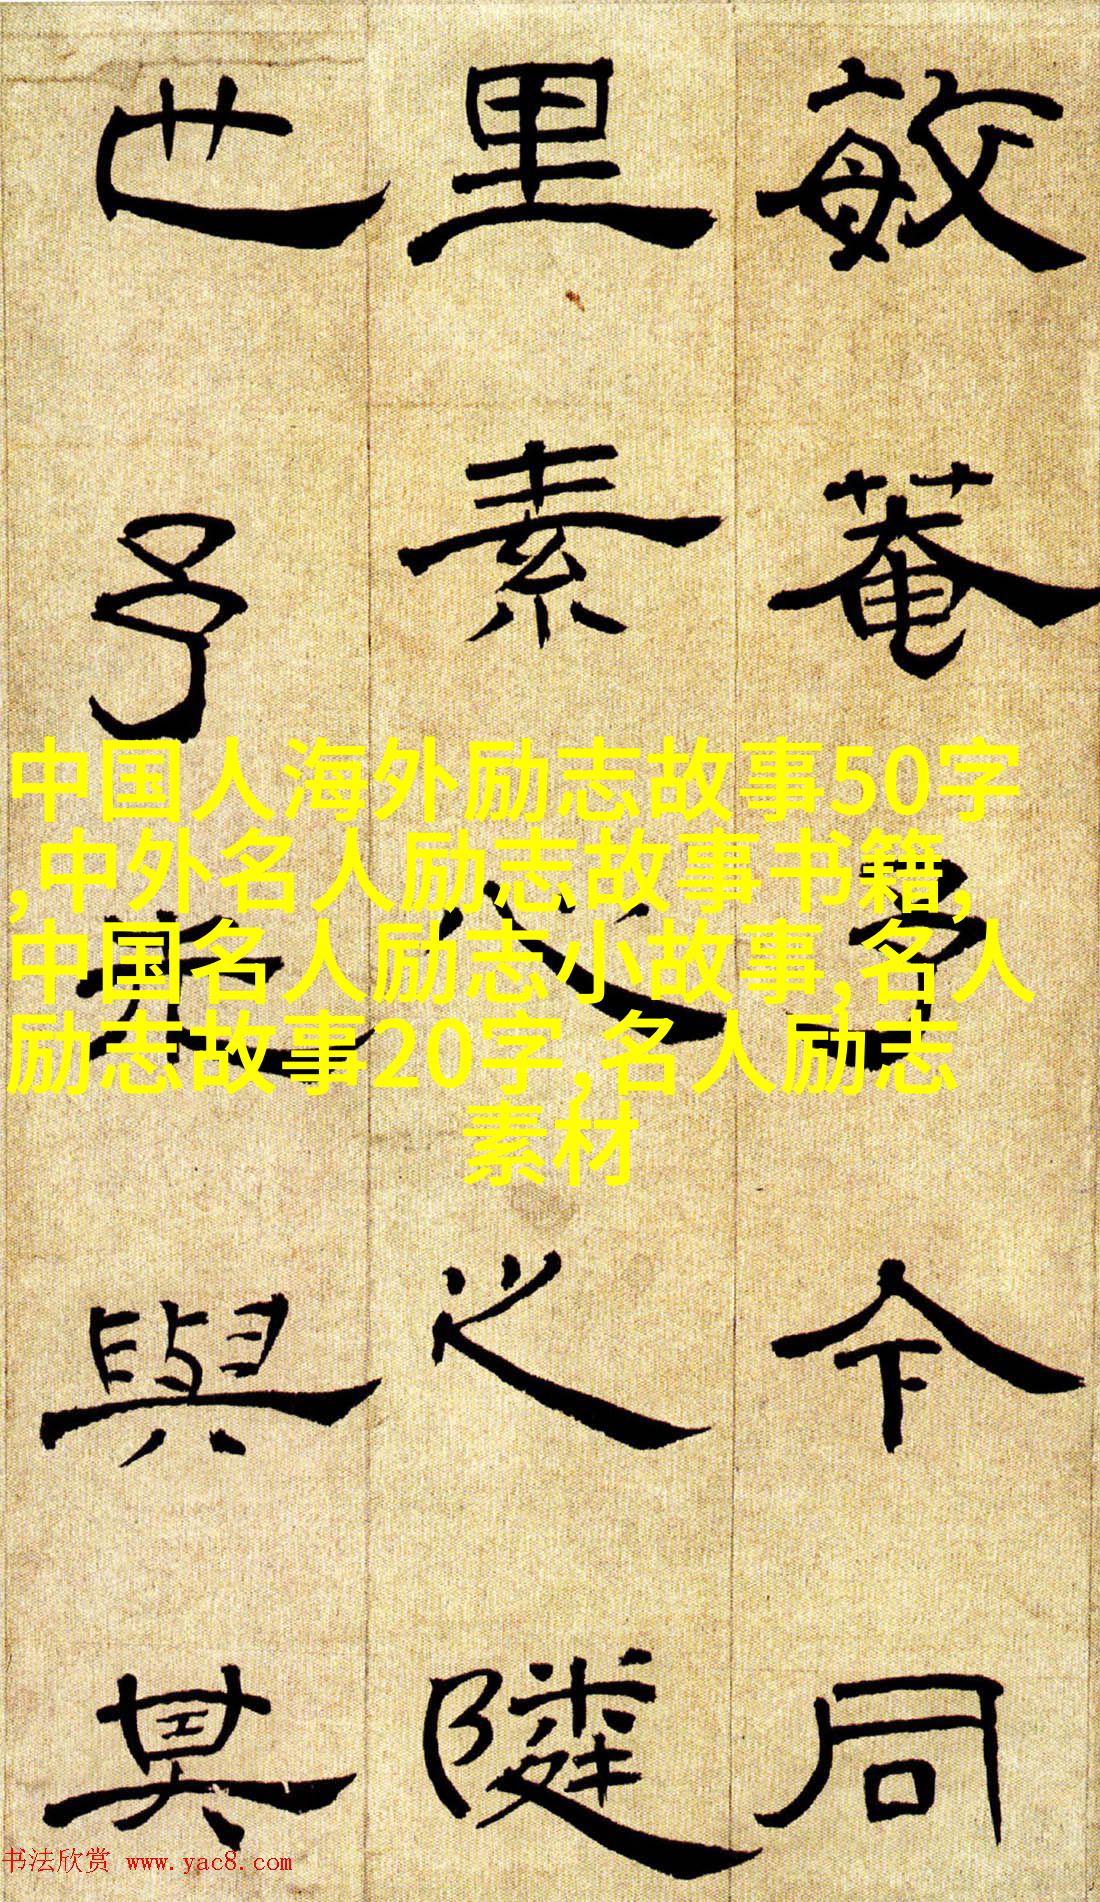 敏菴今同
里素心之隣
也予與其
中国人海外励志故事50字
,中外名人励志故事书籍,
中国名人励志小故事,名人
励志故事20字,名人励志
素材
书法欣赏 www.yac8.com